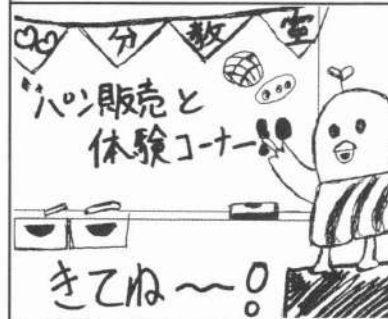 分教室
パン販売と
体験コーナー
きてね〜！